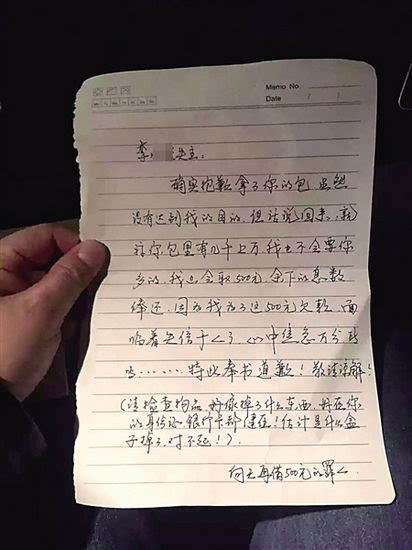 Memo No.
Date / /
李 先生：
确实抱歉拿了你的包，虽然
没有达到我的目的，但话说回来，就
算你包里有几千上万，我也不会要你
多的，我也会取500元，余下的悉数
奉还，因为我为了这500元欠款，面
临着失信于人了，心中焦急万分
……特此奉书道歉！敬请谅解！
（请检查物品，好像掉了什么东西，好在你
的身份证、银行卡都健在！估计是什么盒
子掉了，对不起！）
向天再借500元的罪人